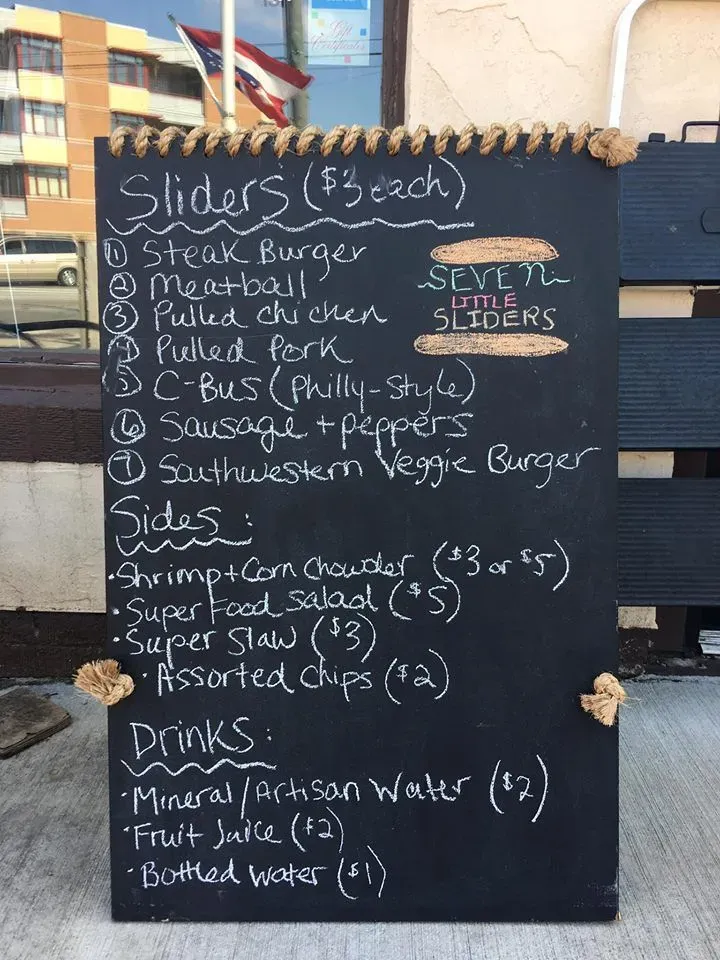 Gift
Certificates
Sliders ($3 each)
① Steak Burger
② Meatball
③ Pulled chicken
④ Pulled Pork
⑤ C-Bus (Philly-Style)
⑥ Sausage + peppers
⑦ Southwestern Veggie Burger
SEVEN
LITTLE
SLIDERS
Sides:
• Shrimp + Corn Chowder ($3 or $5)
• Super Food Salad ($5)
• Super Slaw ($3)
• Assorted Chips ($2)
Drinks:
• Mineral/Artisan Water ($2)
• Fruit Juice ($2)
• Bottled Water ($1)